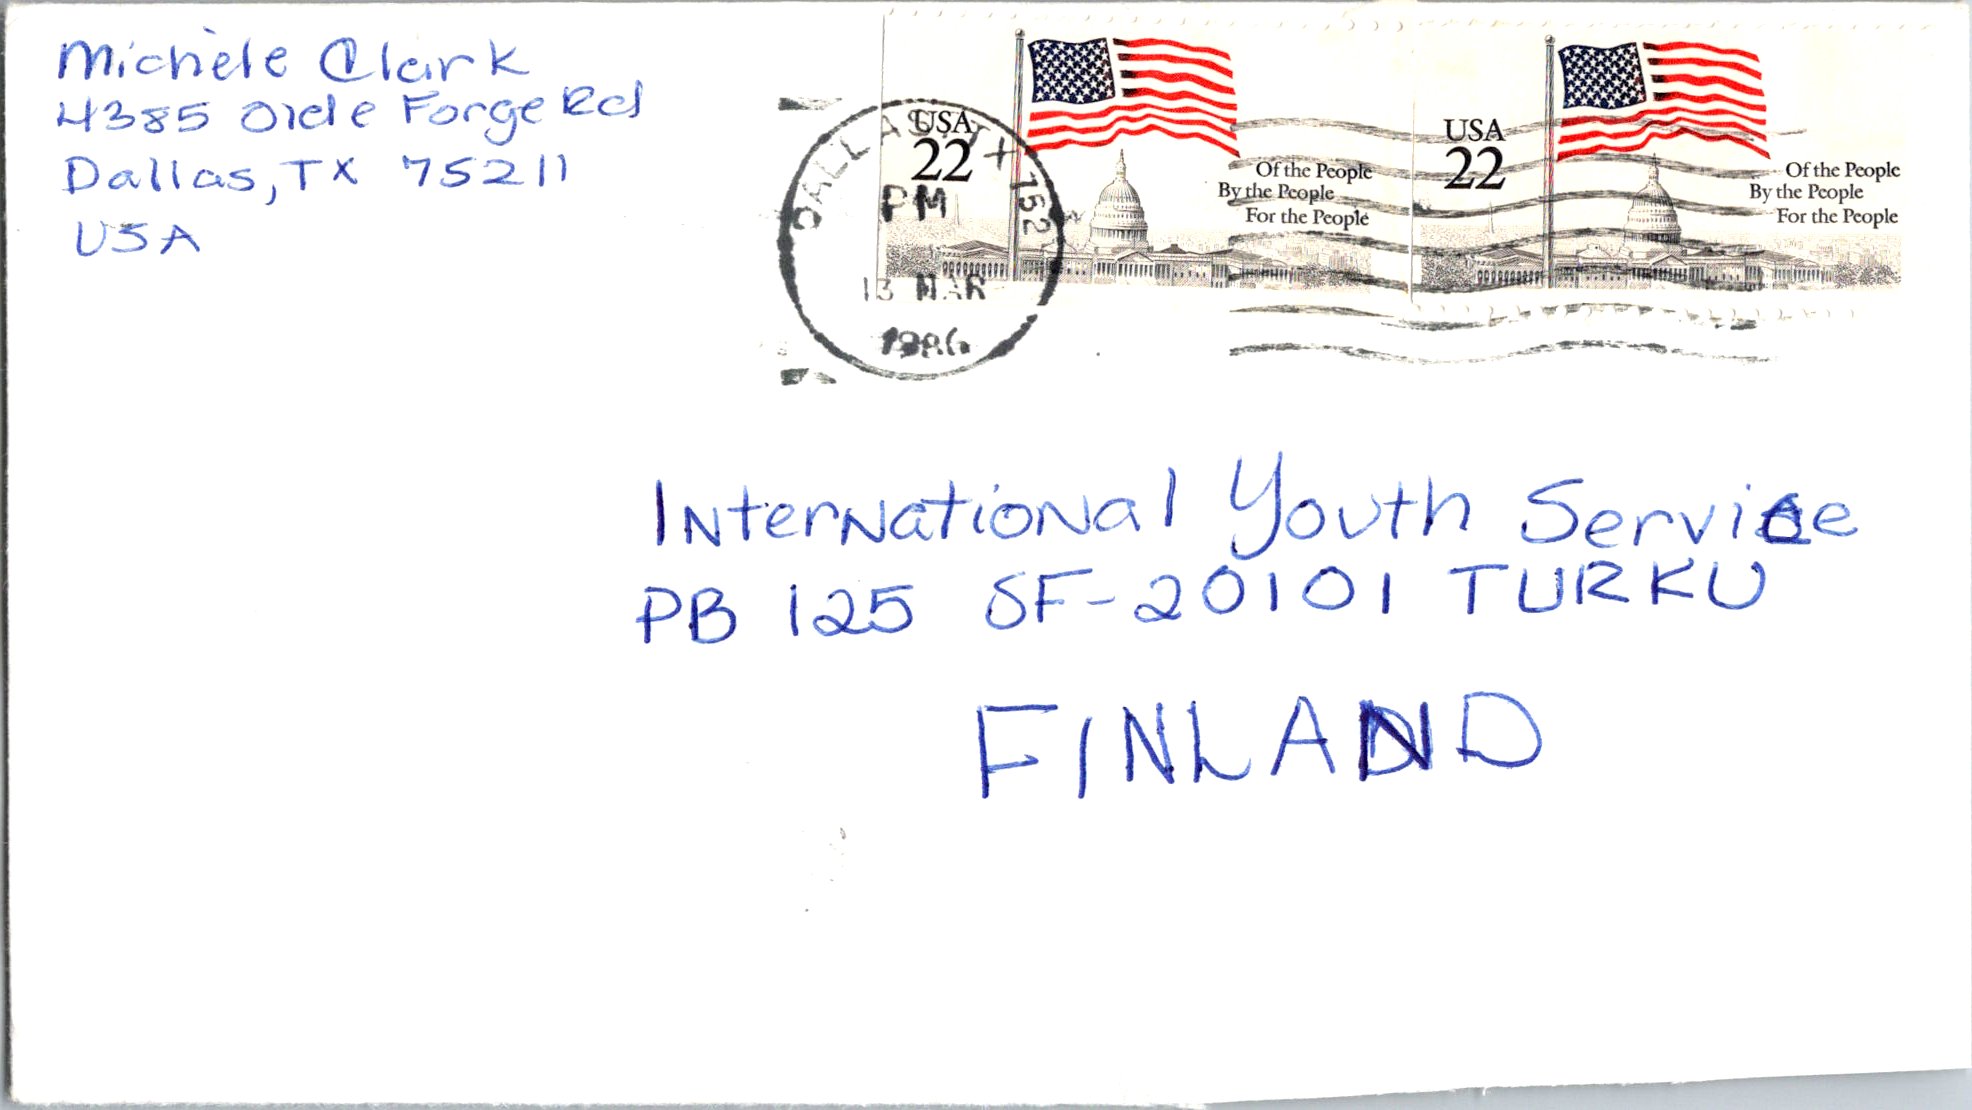 Michele Clark
4385 Olde Forge Rd
Dallas, TX 75211
USA
DALLAS TX 752
PM
13 MAR
1986
USA
22
Of the People
By the People
For the People
USA
22
Of the People
By the People
For the People
International Youth Service
PB 125 SF-20101 TURKU
FINLAND